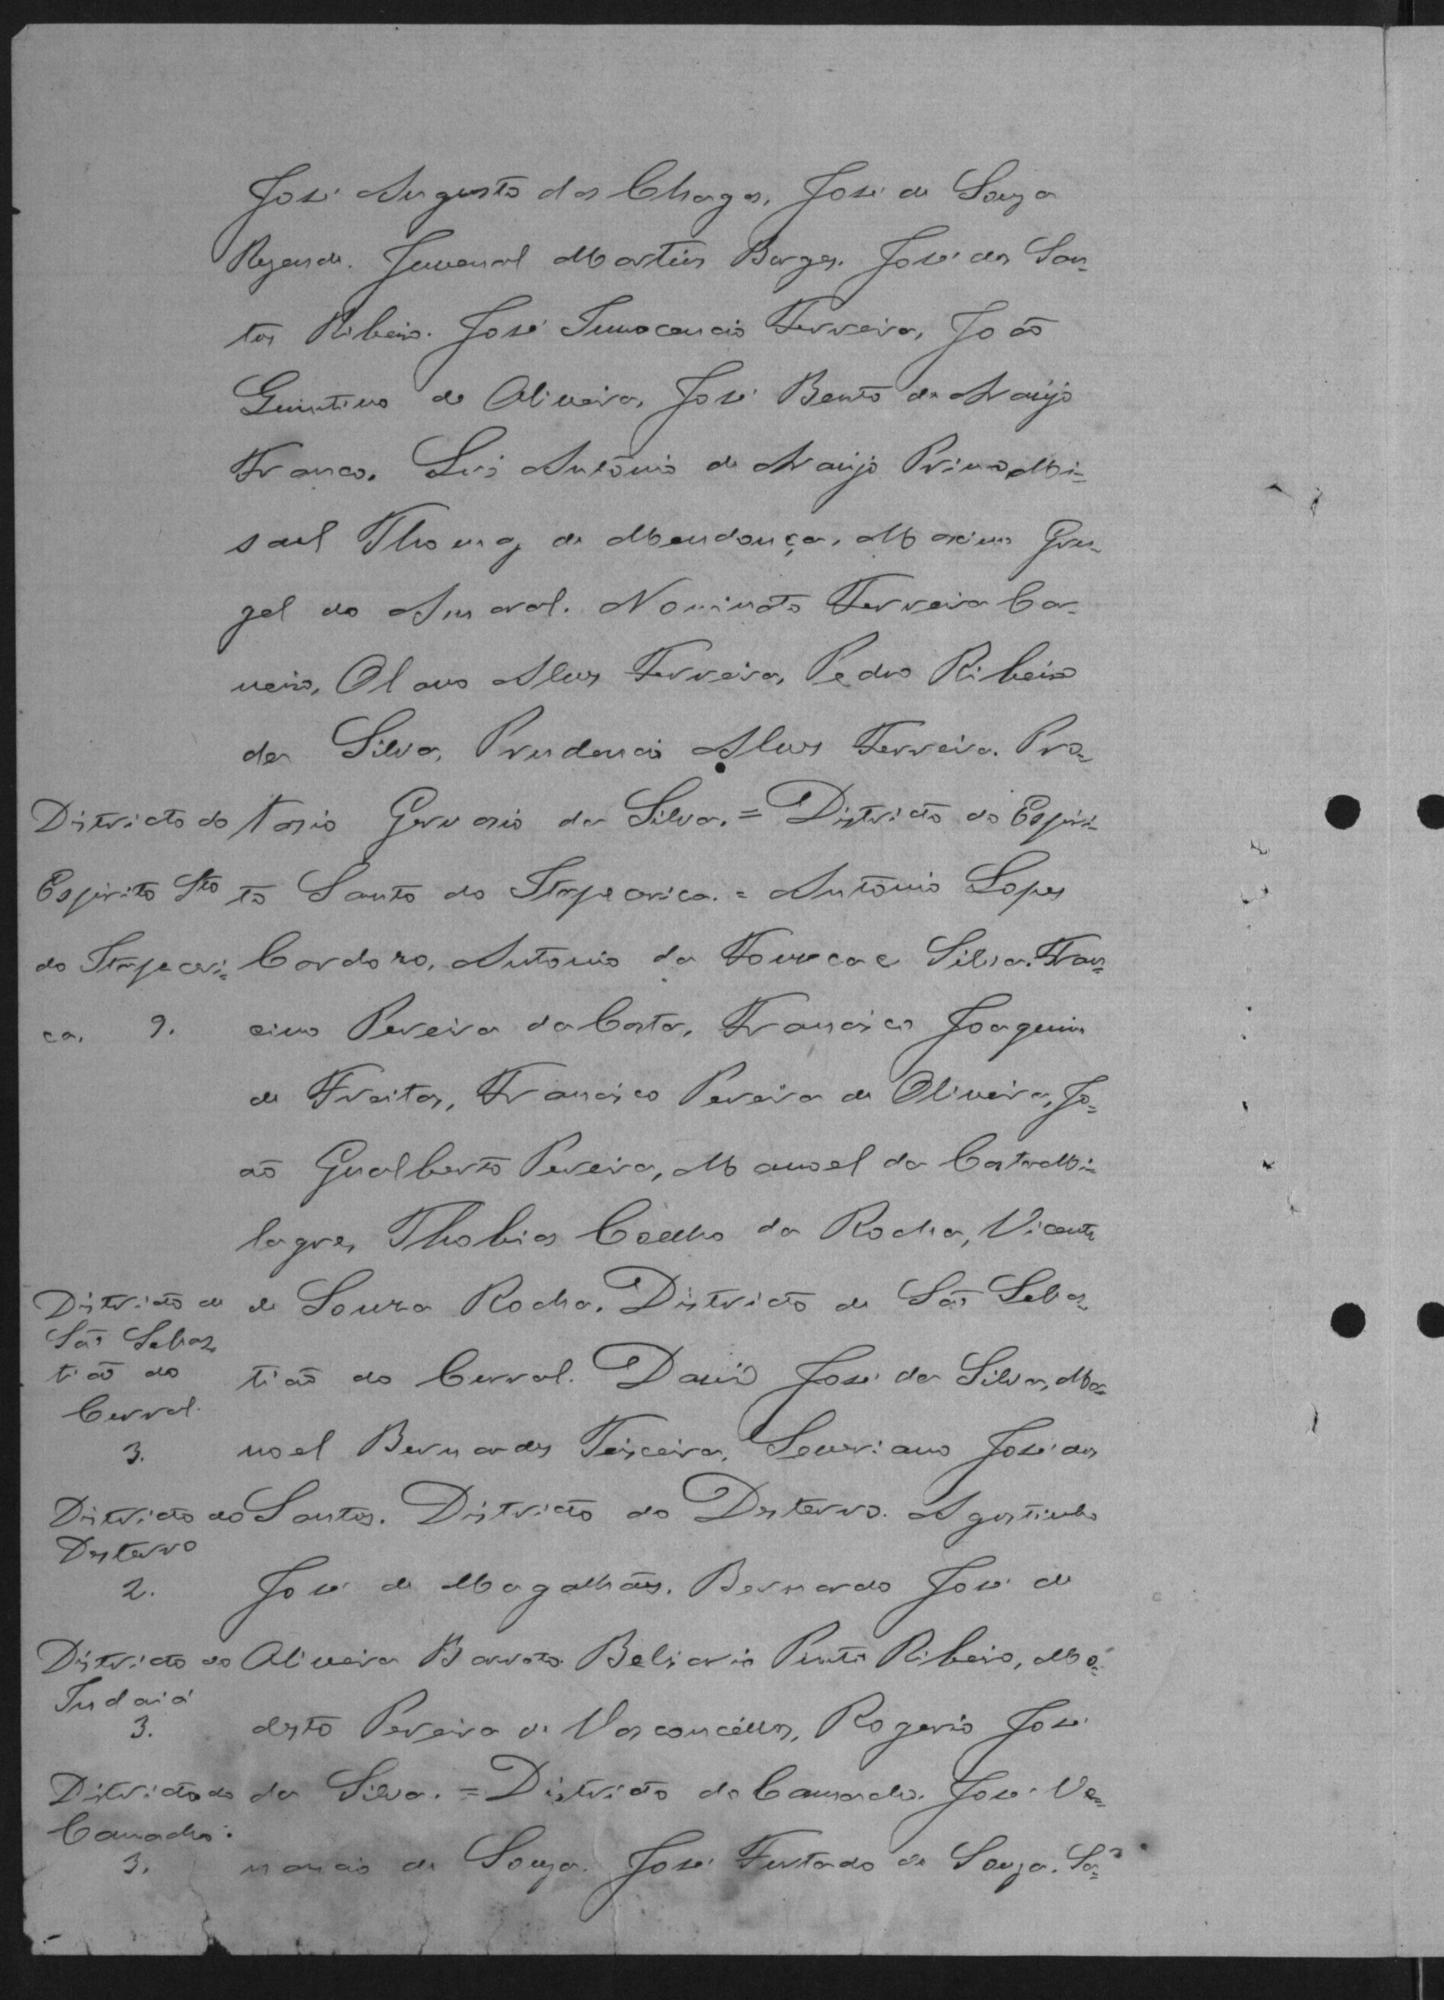 José Augusto das Chagas, José de Souza
Rezende. Juvenal Martins Borges. José dos San-
tos Ribeiro. José Innocencio Ferreira, João
Quintino de Oliveira, José Bento de Araújo
Franco. Luis Antônio de Araújo Primo, Mi-
sael Thomaz de Mendonça, Maximo Gur-
gel do Amaral. Nominato Ferreira Car-
neiro, Olavo Alves Ferreira, Pedro Ribeiro
da Silva, Prudencio Alves Ferreira. Pro-
tasio Gervasio da Silva. = Districto do Espiri-
to Santo do Itapecerica. = Antônio Lopes
Cardozo, Antonio da Fonseca e Silva. Fran-
cisco Pereira da Costa, Francisco Joaquim
de Freitas, Francisco Pereira de Oliveira, Jo-
ão Gualberto Pereira, Manoel da Costa Mi-
lagres, Thobias Coelho da Rocha, Vicente
de Souza Rocha. Districto de São Sebas-
tião do Curral. David José da Silva, Ma-
noel Bernardes Teixeira, Severiano José dos
Santos. Districto do Desterro. Agostinho
José de Magalhães. Bernardo José de
Oliveira Barroto. Belisario Pinto Ribeiro, Mo-
desto Pereira de Vasconcellos, Rogerio José
da Silva. = Districto do Camacho. José Ve-
nancio de Souza. José Furtado de Souza. Sa-
Districto do
Espirito Sto
do Itapeceri-
ca. 9.
Districto de
São Sebas-
tião do
Curral.
3.
Districto do
Desterro
2.
Districto do
Indaiá
3.
Districto do
Camacho.
3.